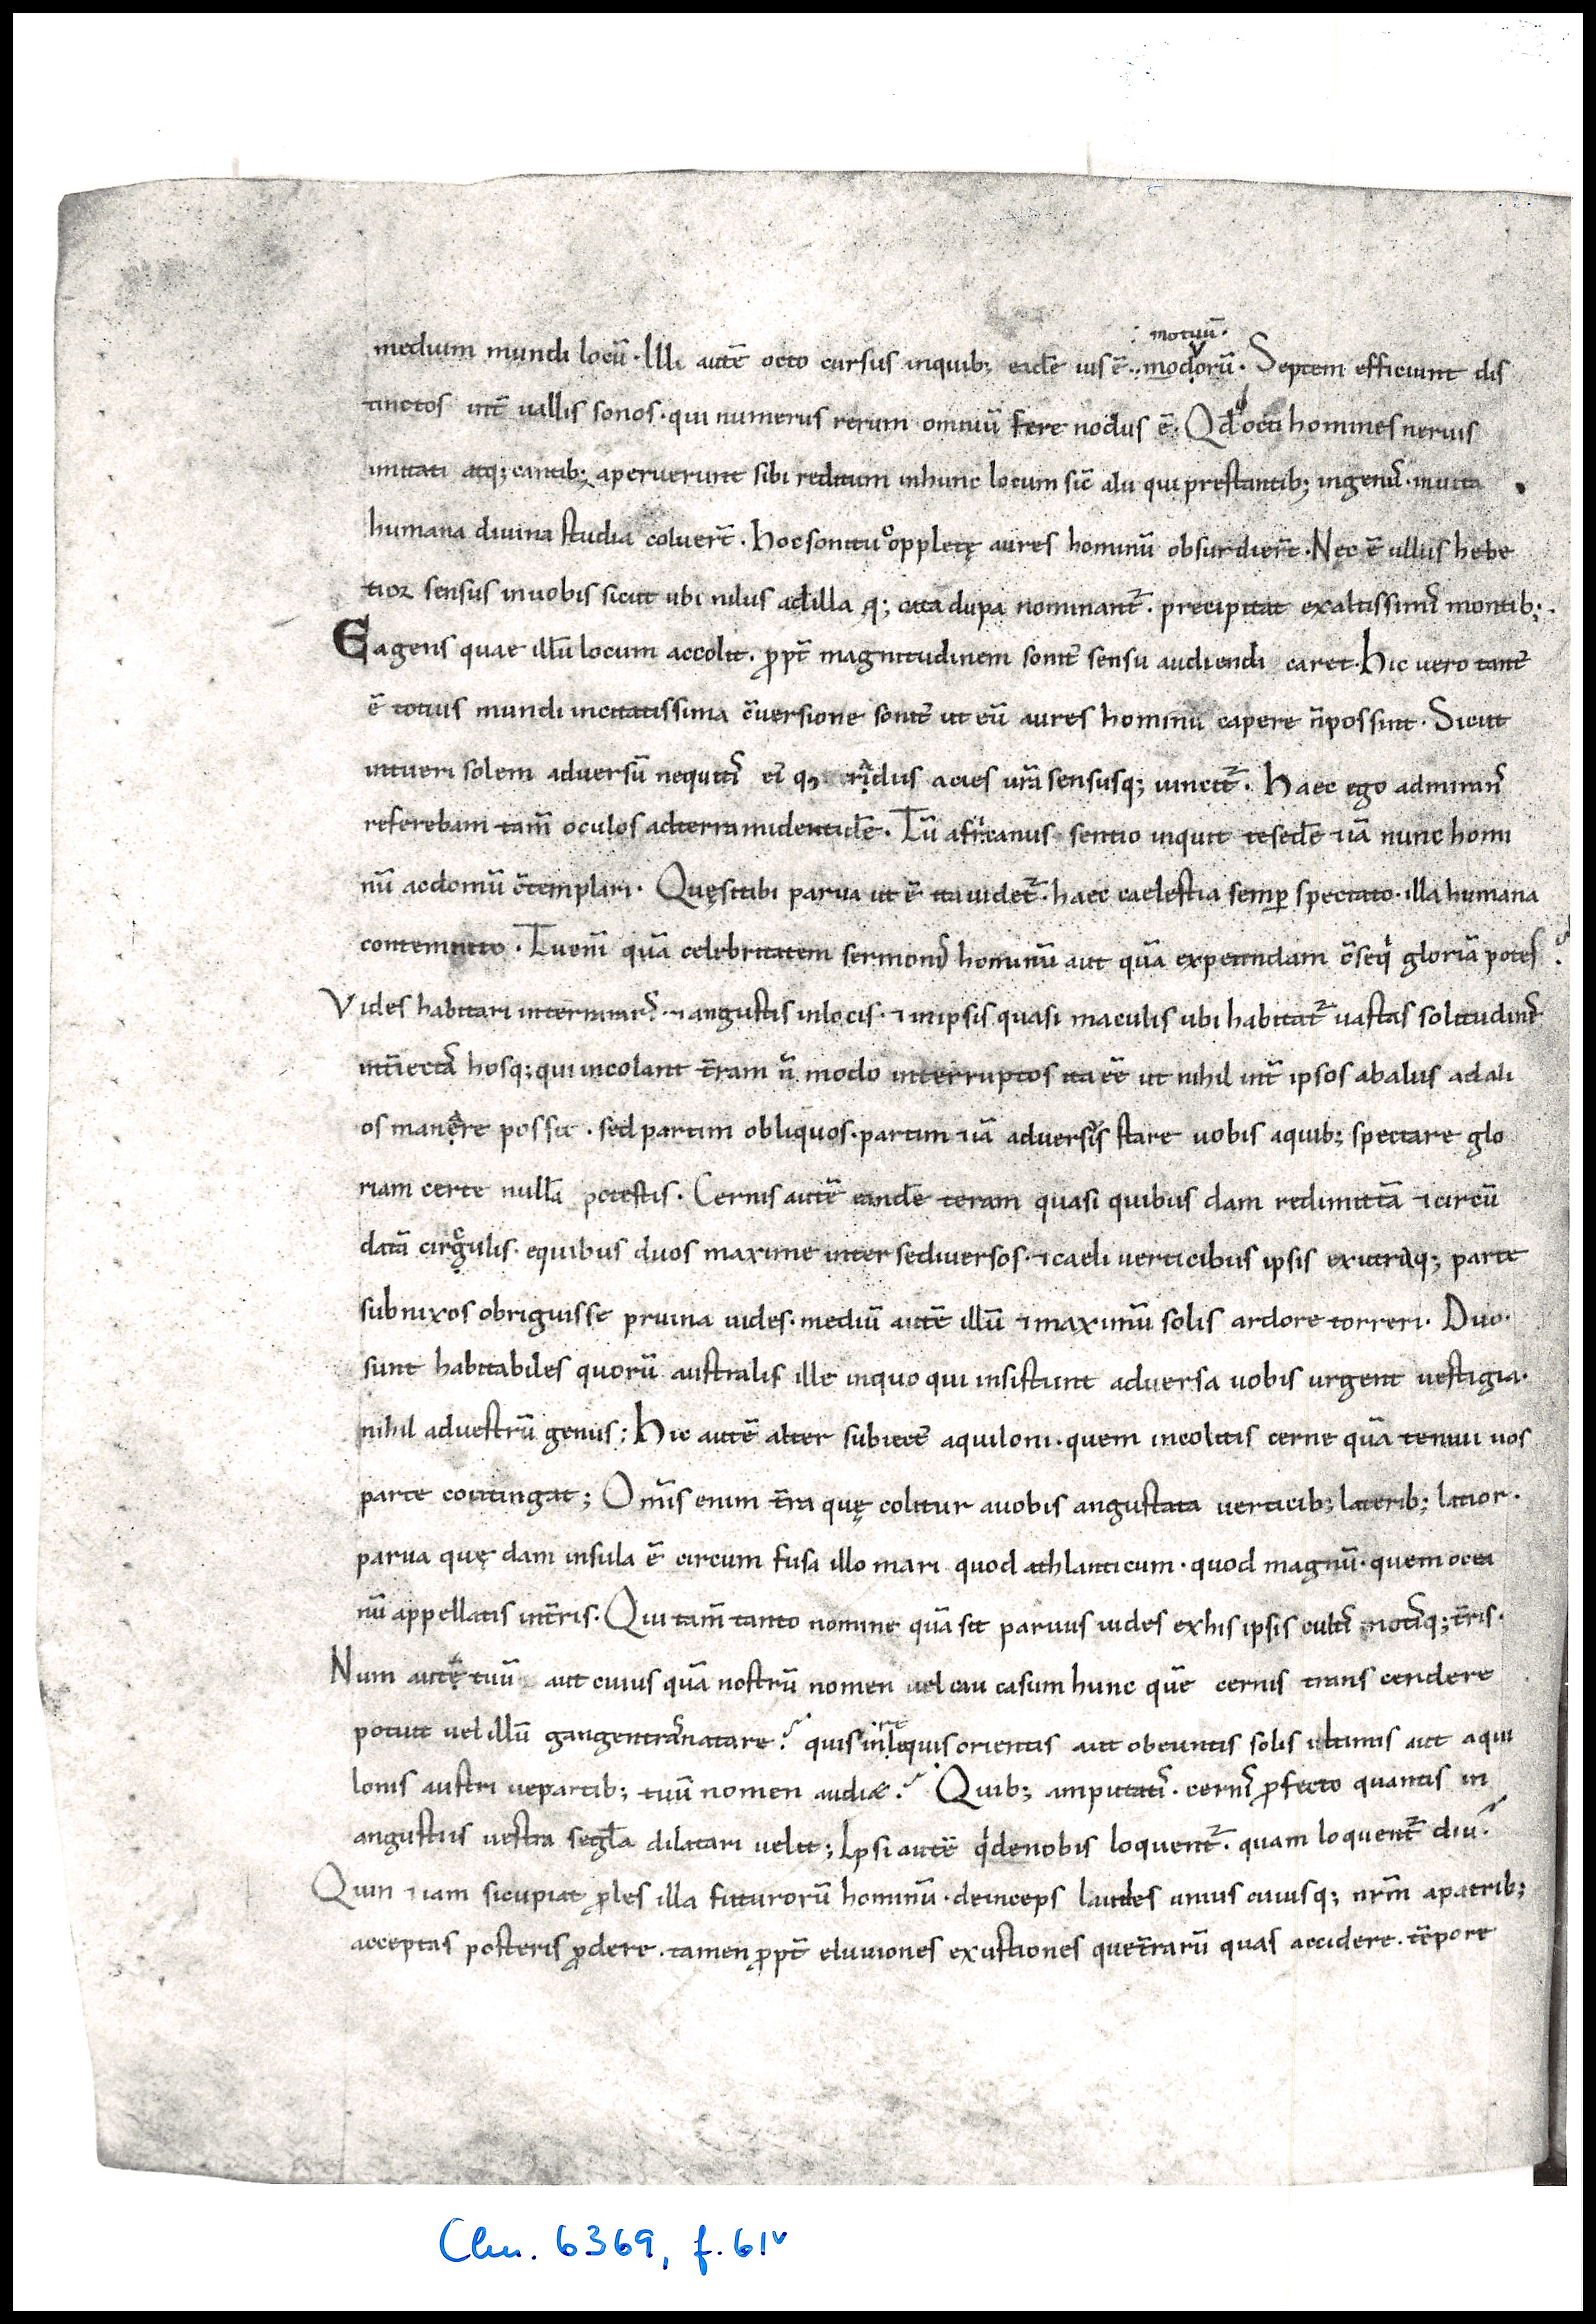 motuū·
medium mundi locū· Illi autē octo cursus inquib; eadē uis ē·modorū· Septem efficiunt dis
tinctos int̄ uallis sonos·qui numerus rerum omniū fere nodus ē· Qd̄ docti homines neruis
imitati atq; cantib; aperuerunt sibi reditum inhunc locum sic̄ alii qui prestantib; ingeniis·inuita
humana diuina studia coluer̄t· hoc sonitu oppletę aures hominū obsurdier̄t·Nec ē ullus hebe
tior sensus inuobis sicut ubi nilus adilla q; cata dupa nominant᷑· precipitat exaltissimis montib;·
Eagens quae illū locum accolit· ꝓpt̄ magnitudinem sonit᷒ sensu audiendi caret·hic uero tant᷒
ē totius mundi incitatissima c̄uersione sonit᷒ ut eū aures hominū capere n̄possint· Sicut
intueri solem aduersū nequitis ei q; radius acies ur̄a sensusq; uincit᷑· haec ego admirans
referebam tam̄ oculos adterramidentidē· Tū africanus sentio inquit tesedē &iā nunc homi
nū acdomū c̄templari· Quęsitibi parua ut ē itauidet᷑·haec caelestia semꝑ spectato·illa humana
contemnito·Tuenī quā celebritatem sermonis hominū aut quā expetendam c̄seqi gloriā potes?
Vides habitari interrararis·&angustis inlocis·&inipsis quasi maculis ubi habitat᷑ uastas solitudines
int̄iectas hosq; qui incolant t̄ram n̄ modo interruptos ita eē ut nihil int̄ ipsos abaliis adali
os manare possit·sed partim obliquos·partim &iā aduersos stare uobis aquib; spectare glo
riam certe nullā potestis· Cernis autē eandē teram quasi quibus dam redimittā &circū
datā cirgulis·equibus duos maxime inter sediuersos·&caeli uerticibus ipsis exutraq; parte
subnixos obriguisse pruina uides·mediū autē illū &maximū solis ardore torreri· Duo·
sunt habitabiles quorū australis ille inquo qui insistunt aduersa uobis urgent uestigia·
nihil aduestrū genus; hic autē alter subiect᷒ aquiloni·quem incolitis cerne quā tenui uos
parte contingat; Om̄is enim t̄ra quę colitur auobis angustata uerticib; laterib; latior·
parua quę dam insula ē circum fusa illo mari quod athlanticum·quod magnū·quem ocea
nū appellatis int̄ris· Qui tam̄ tanto nomine quā sit paruus uides exhis ipsis cultis notisq; t̄ris·
Num autē tuū aut cuius quā nostrū nomen uel cau casum hunc quē cernis trans cendere
potuit uel illū gangentransnatare? quis inreliquis orientis aut obeuntis solis ultimis aut aqui
lonis austri uepartib; tuū nomen audi&? Quib; amputatis·cernis ꝓfecto quantis in
angustiis uestra se gl̄a dilatari uelit; Ipsi autē qidenobis loquent᷑·quam loquent᷑ diu?
Quin &iam sicupiat ꝓles illa futurorū hominū·deinceps laudes unius cuiusq; nrm̄ apatrib;
acceptas posteris ꝓdere·tamen ꝓpt̄ eluuiones exustiones quet̄rarū quas accidere·tēpore
Clm. 6369, f. 61v